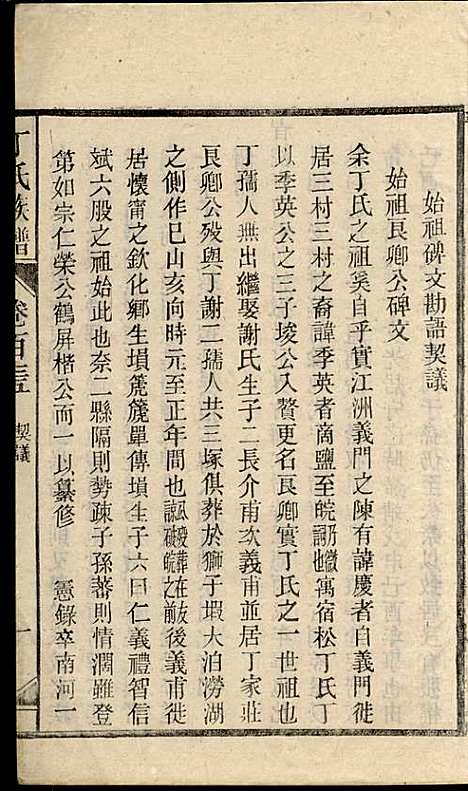 始祖碑文勘語契議
始祖艮卿公碑文
余丁氏之祖奚自乎實江洲義門之陳有諱慶者自義門徙
居三村三村之裔諱季英者商鹽至皖訪巘寓宿松丁氏丁
以季英公之三子堎公入贅更名艮卿實丁氏之一世祖也
丁孺人無出繼娶謝氏生子二長介甫次義甫並居丁家莊
艮卿公歿與丁謝二孺人共三塚俱葬於獅子垻大泊澇湖
之側作巳山亥向時元至正年間也諷礙葬在前皖之故後義甫徙
居懷甯之欽化鄉生塤篪篪單傳塤生子六曰仁義禮智信
斌六股之祖始此也奈二縣隔則勢疎子孫蕃則情濶雖登
第如宗仁榮公鶴屏楷公而一以纂修 憲錄卒南河一
丁氏族譜 卷百三 契議 一